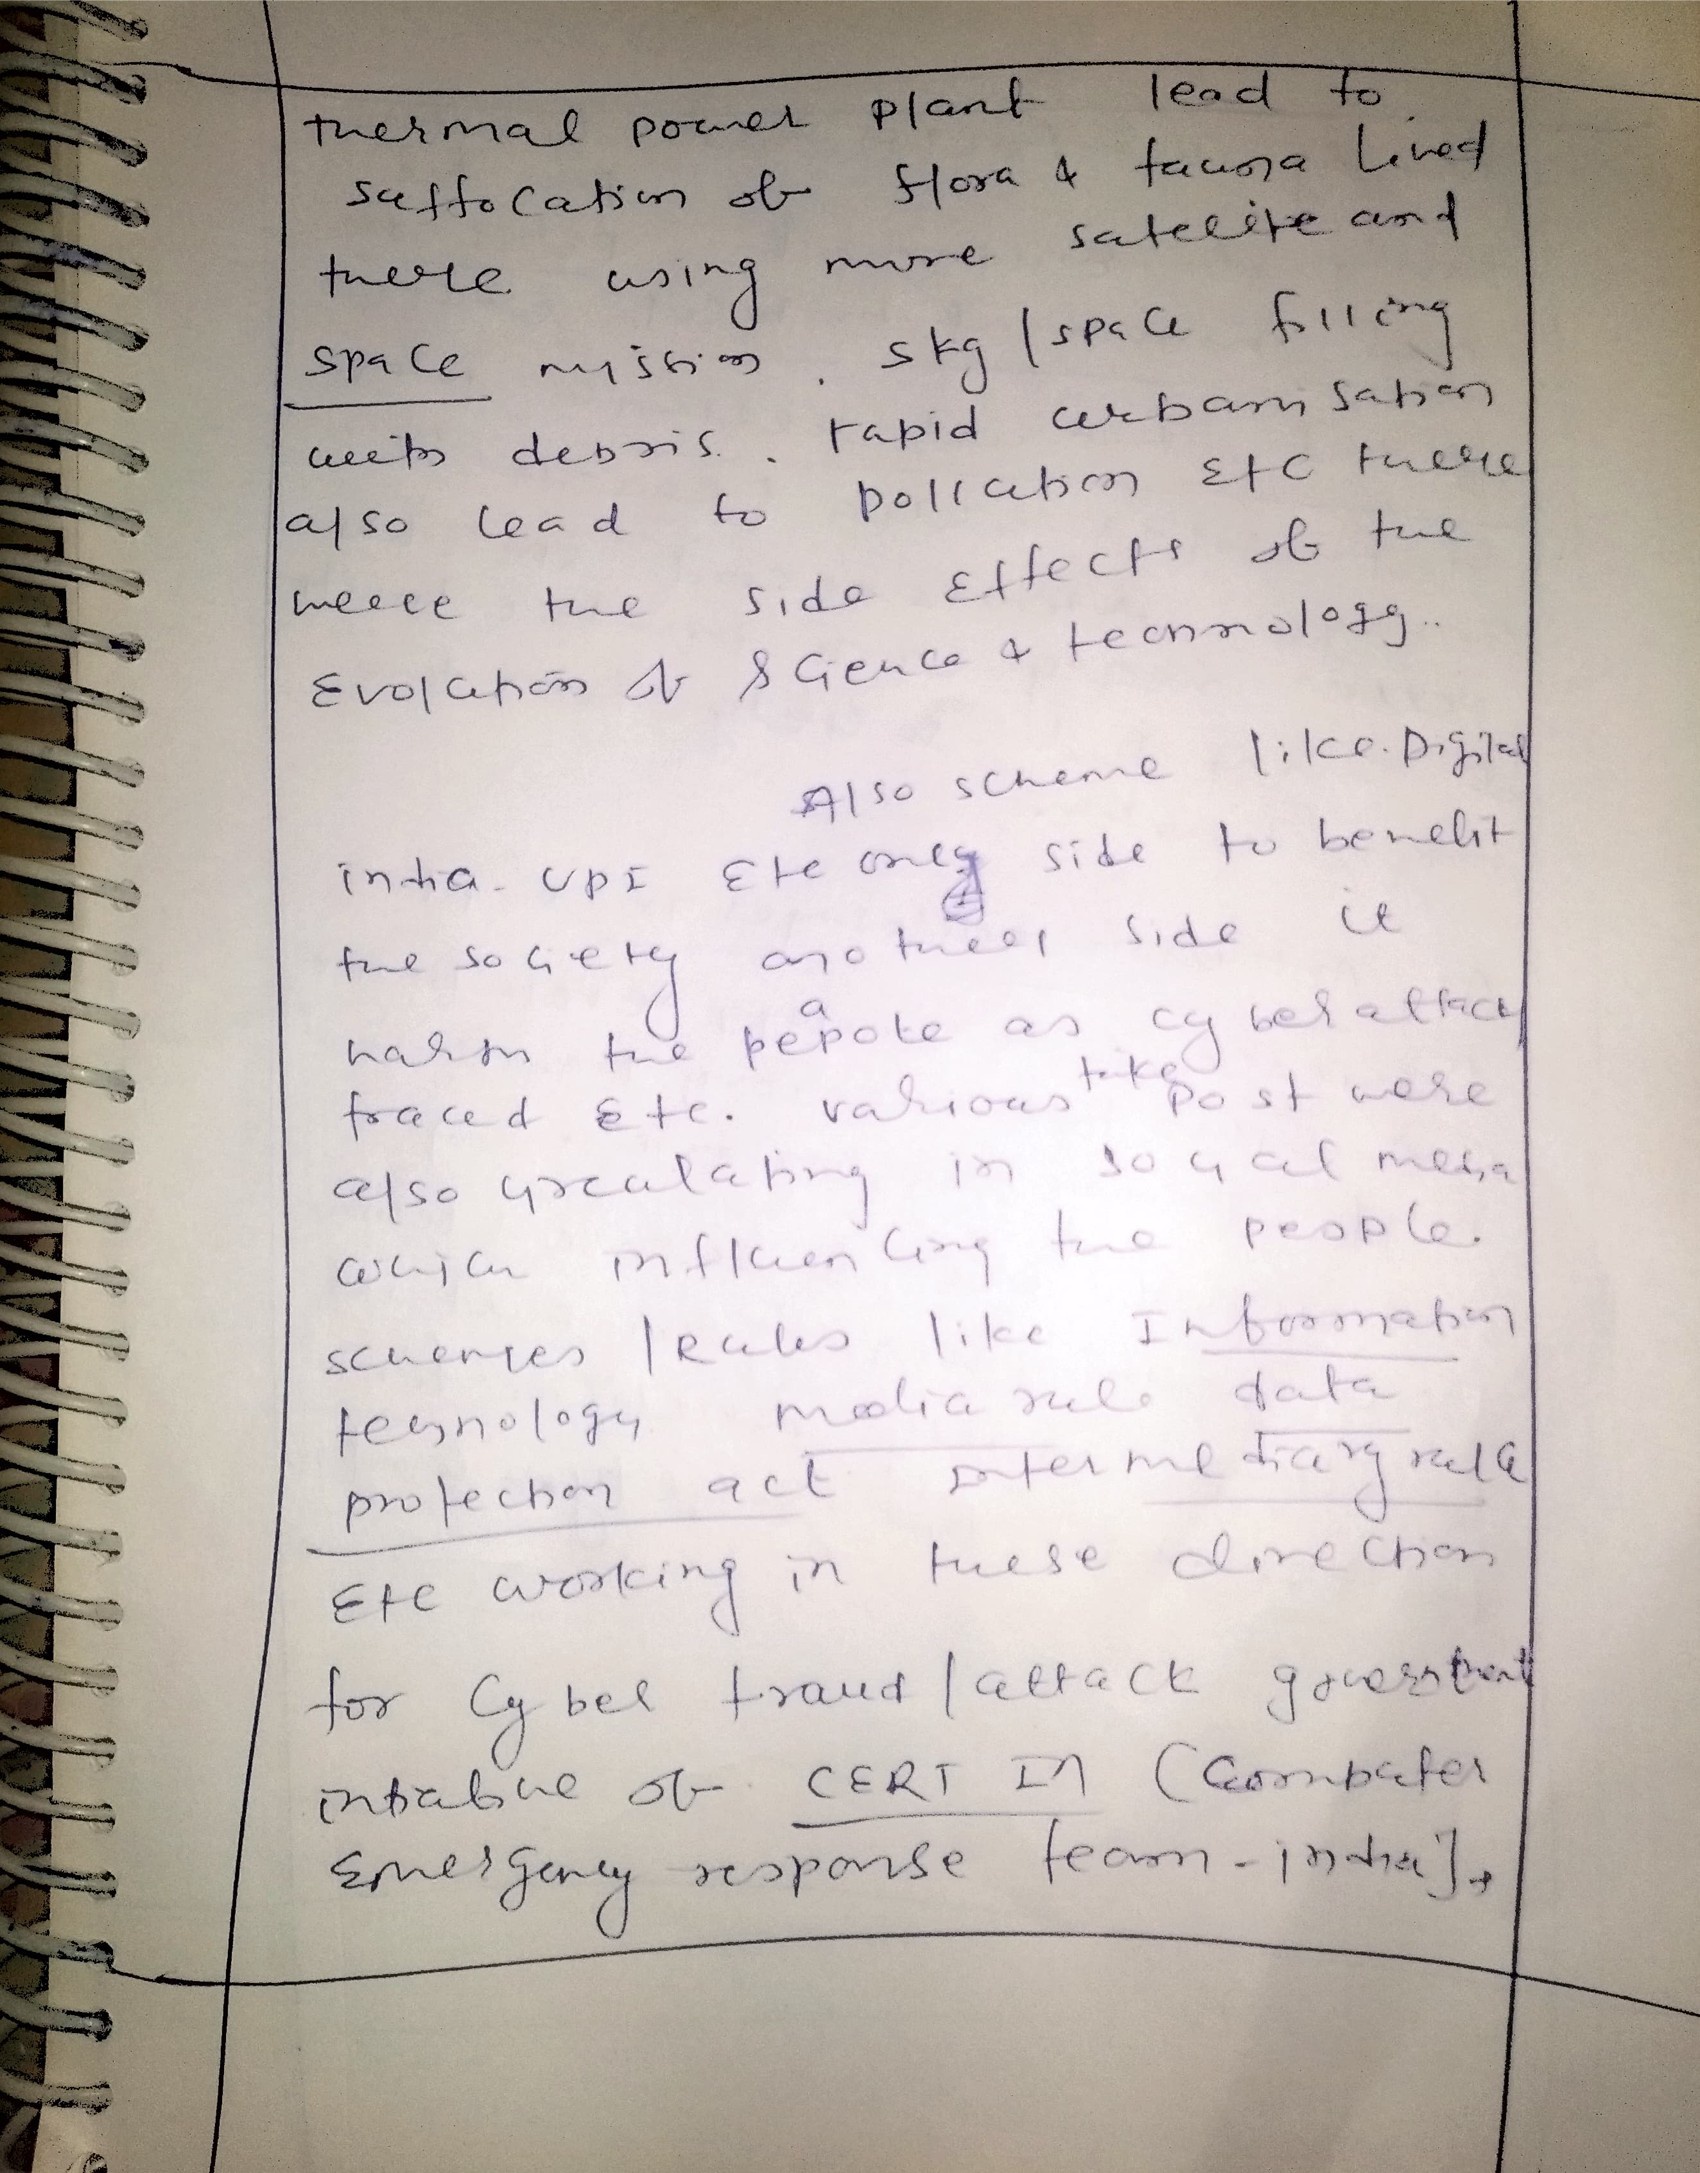 thermal power plant lead to
suffocation of flora & fauna lived
there using more satelite and
space mission. sky/space filling
with debris. rapid urbanisation
also lead to pollution Etc these
were the side Effects of the
Evolution of Science & technology..
Also scheme like Digital
india UPI Etc only side to benefit
the society another side it
harm the people as cyber attack
fraud Etc. various fake post were
also circulating in social media
which influencing the people.
schemes/Rules like Information
technology media rule data
protection act intermediary rule
Etc working in these direction
for Cyber fraud/attack government
intiative of CERT In (Computer
Emergency response team-india),